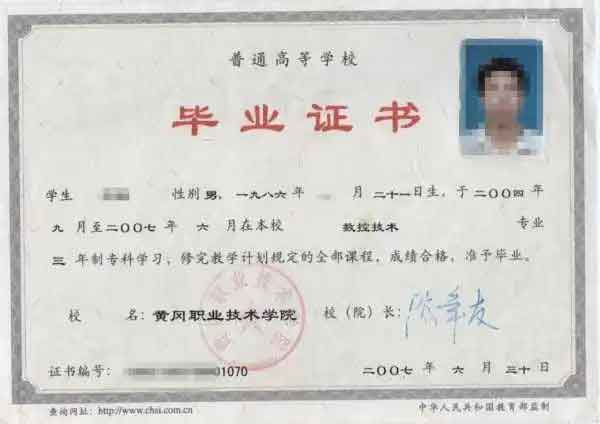 普通高等学校
毕业证书
学生 性别 男，一九八六年 月 二十一日生，于二〇〇四年
九 月至二〇〇七 年 六 月在本校 数控技术 专业
三 年制专科学习，修完教学计划规定的全部课程，成绩合格，准予毕业。
校 名：黄冈职业技术学院 校（院）长：
证书编号： 01070 二〇〇七 年 六 月 三十日
查询网址：http://www.chsi.com.cn 中华人民共和国教育部监制